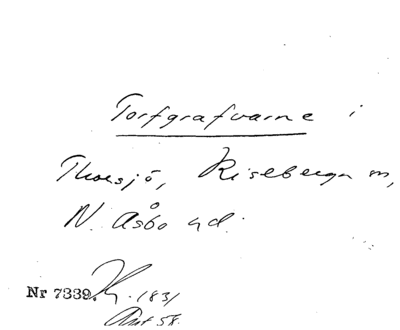 Torfgrafvarne i
Thorsjö, Riseberga m,
N. Åsbo hd.
Nr 7339. 1831
Art 58.